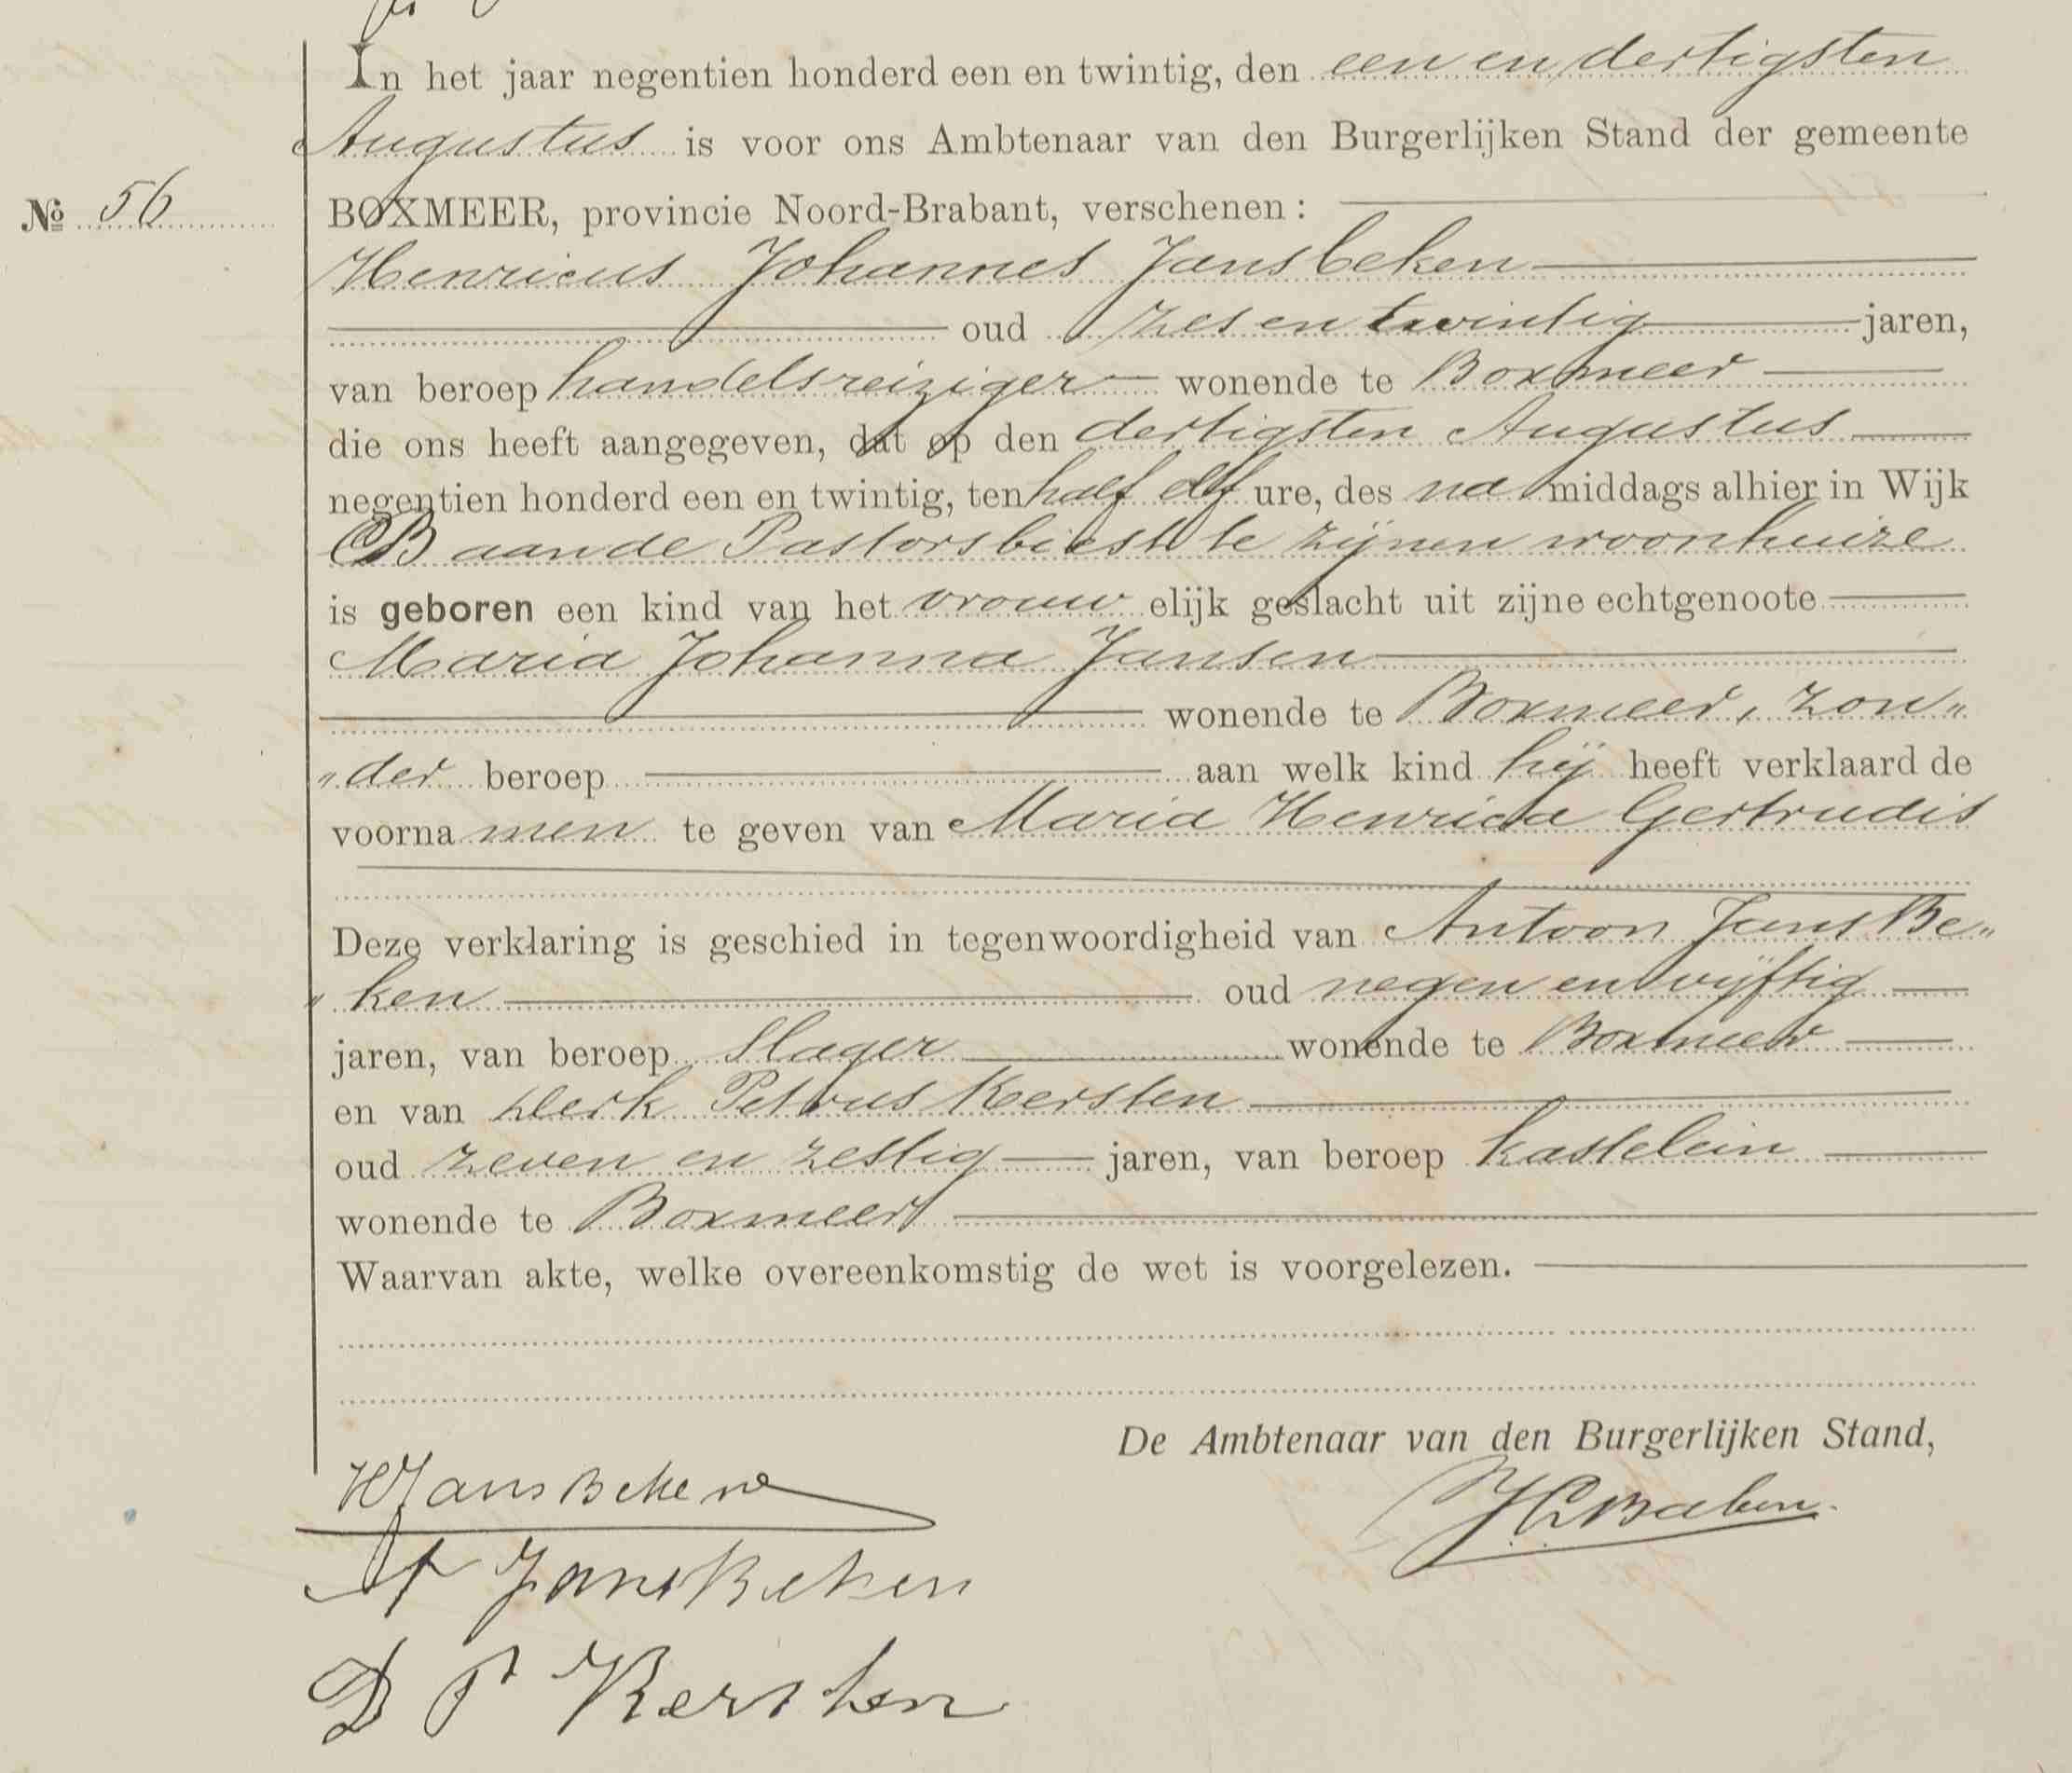 In het jaar negentien honderd een en twintig, den een en dertigsten
Augustus is voor ons Ambtenaar van den Burgerlijken Stand der gemeente
№ 56
BOXMEER, provincie Noord-Brabant, verschenen:
Henricus Johannes Jansbeken
oud zes en twintig jaren,
van beroep handelsreiziger wonende te Boxmeer
die ons heeft aangegeven, dat op den dertigsten Augustus
negentien honderd een en twintig, ten half elf ure, des na middags alhier in Wijk
B aan de Pastorsbiest te zijnen woonhuize
is geboren een kind van het vrouw elijk geslacht uit zijne echtgenoote
Maria Johanna Jansen
wonende te Boxmeer, zon„
„der beroep aan welk kind hij heeft verklaard de
voorna men te geven van Maria Henrica Gertrudis
Deze verklaring is geschied in tegenwoordigheid van Antoon Jans Be„
„ken oud negen en vijftig
jaren, van beroep Slager wonende te Boxmeer
en van Derk Petrus Kersten
oud zeven en zestig jaren, van beroep kastelein
wonende te Boxmeer
Waarvan akte, welke overeenkomstig de wet is voorgelezen.
De Ambtenaar van den Burgerlijken Stand,
HJansBeken
A JansBeken
D P Kersten